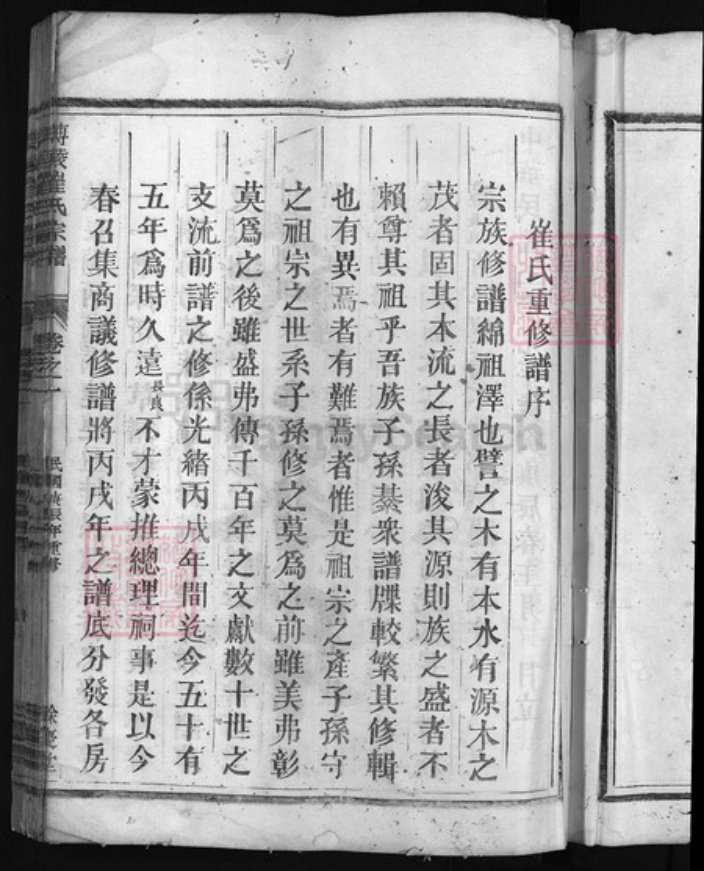 崔氏重修譜序
宗族修譜綿祖澤也譬之木有本水有源木之
茂者固其本流之長者浚其源則族之盛者不
賴尊其祖乎吾族子孫綦衆譜牒較繁其修輯
也有異焉者有難焉者惟是祖宗之產子孫守
之祖宗之世系子孫修之莫爲之前雖美弗彰
莫爲之後雖盛弗傳千百年之文獻數十世之
支流前譜之修係光緒丙戌年間迄今五十有
五年爲時久遠長良不才蒙推總理祠事是以今
春召集商議修譜將丙戌年之譜底分發各房
博陵崔氏宗譜
卷之一
民國庚辰年重修
餘慶堂